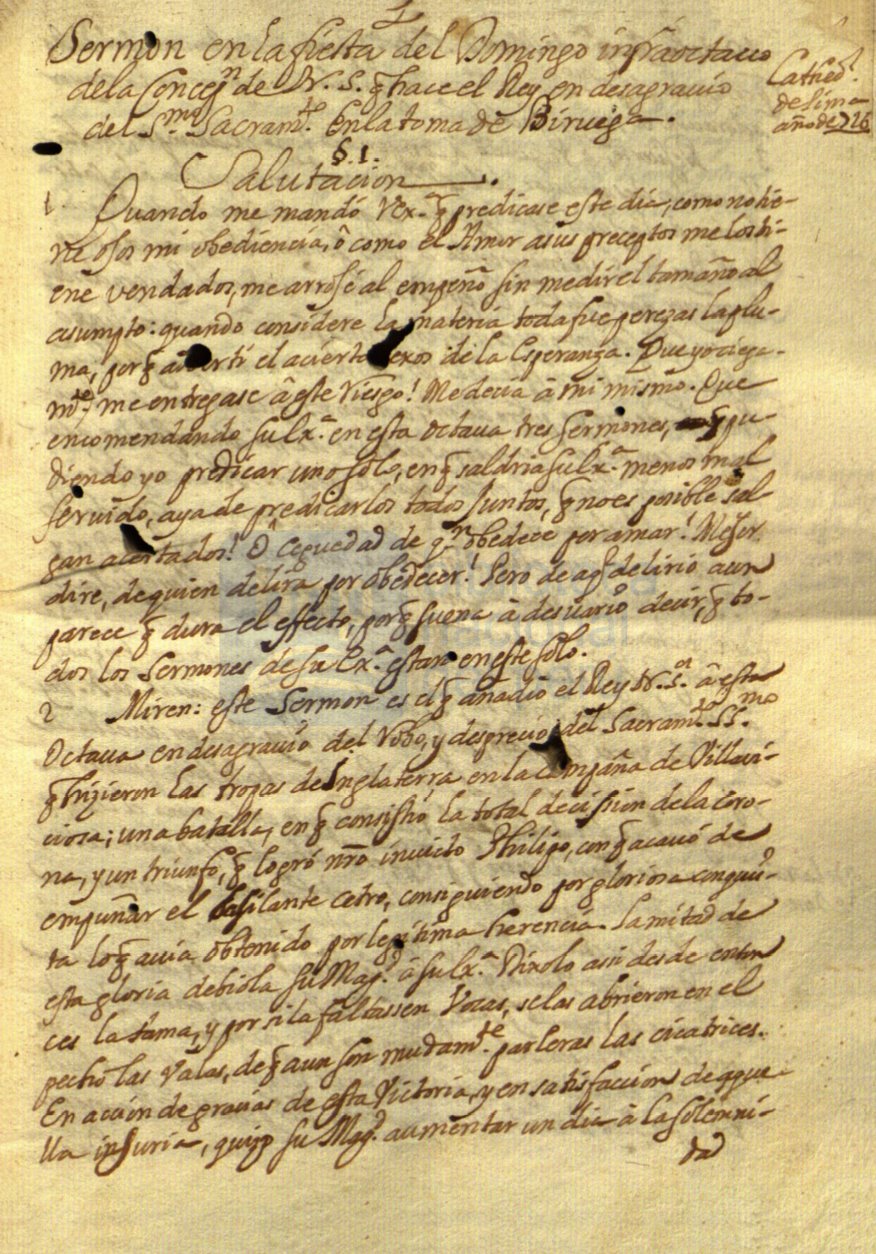 Sermon en la fiesta del Domingo infraoctavo
de la Concepn. de N. S. q hace el Rey en desagravio
del Smo. Sacramto. en la toma de Biruega.
Cathedl.
de Lima
año de 726
§. 1.
Salutacion.
1. Quando me mandó Vexa. q predicase este dia, como no tie-
ne ojos mi obediencia, ô como el Amor a sus preceptos me los ti-
ene vendados, me arrojé al empeño sin medir el tamaño al
asumpto: quando considere la materia toda fue perezas la plu-
ma, porq advertí el acierto lexos de la Esperanza. Que yo ciega-
mte. me entregase â este riesgo! Me decia â mi mismo. Que
encomendando su Exa. en esta octava tres sermones, q pu-
diendo yo predicar uno solo, en q saldria su Exa. menos mal
servido, aya de predicarlos todos juntos, q no es posible sal-
gan acertados! Ô ceguedad de qn. obedece por amar! Mejor
dire, de quien delira por obedecer! Pero de aql. delirio aun
parece q dura el effecto, porq suena â desvario decir, q to-
dos los Sermones de su Exa. estan en este solo.
2 Miren: este Sermon es el q añadió el Rey N. Sr. â esta
Octava en desagravio del robo, y desprecio del Sacramto. SSmo
q hizieron las tropas de Inglaterra en la campaña de Villavi-
ciosa; una batalla, en q consistió la total decission de la coro-
na, y un triunfo, q logró nro invicto Philipo, con q acavó de
empuñar el basilante cetro, consiguiendo por gloriosa conquis-
ta lo q avia obtenido por legitima herencia. La mitad de
esta gloria debióla su Magd. â su Exa. Dixolo assi desde enton
ces la fama, y por si la faltassen vozas, se las abrieron en el
pecho las valas, de q aun son mudamte. parleras las cicatrices.
En accion de gracias de esta Victoria, y en satisfaccion de aque-
lla injuria, quizo su Magd. aumentar un dia â la solemni-
dad